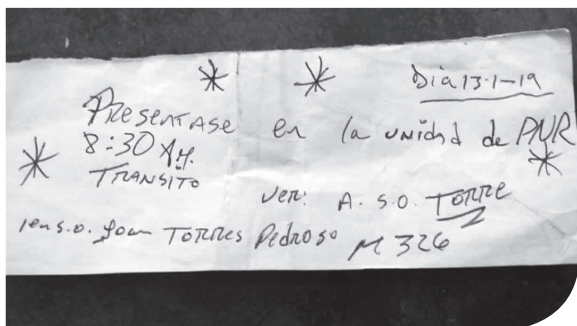 Dia 13-1-19
Presentase en la unidad de PNR
8:30 AM.
TRANSITO
Ver: A. S.O. TORRE
Joan TORRES Pedroso M 326